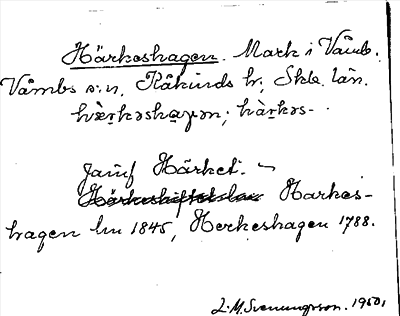 Härkeshagen. Mark i Våmb.
Våmbs s:n, Kåkinds hd, Skb. län.
hæ̀rkəshaɡən; hàrkəs-
Jämf Härket.
Harkes-
hagen lm 1845, Herkeshagen 1788.
L. M. Svenungsson. 1950.